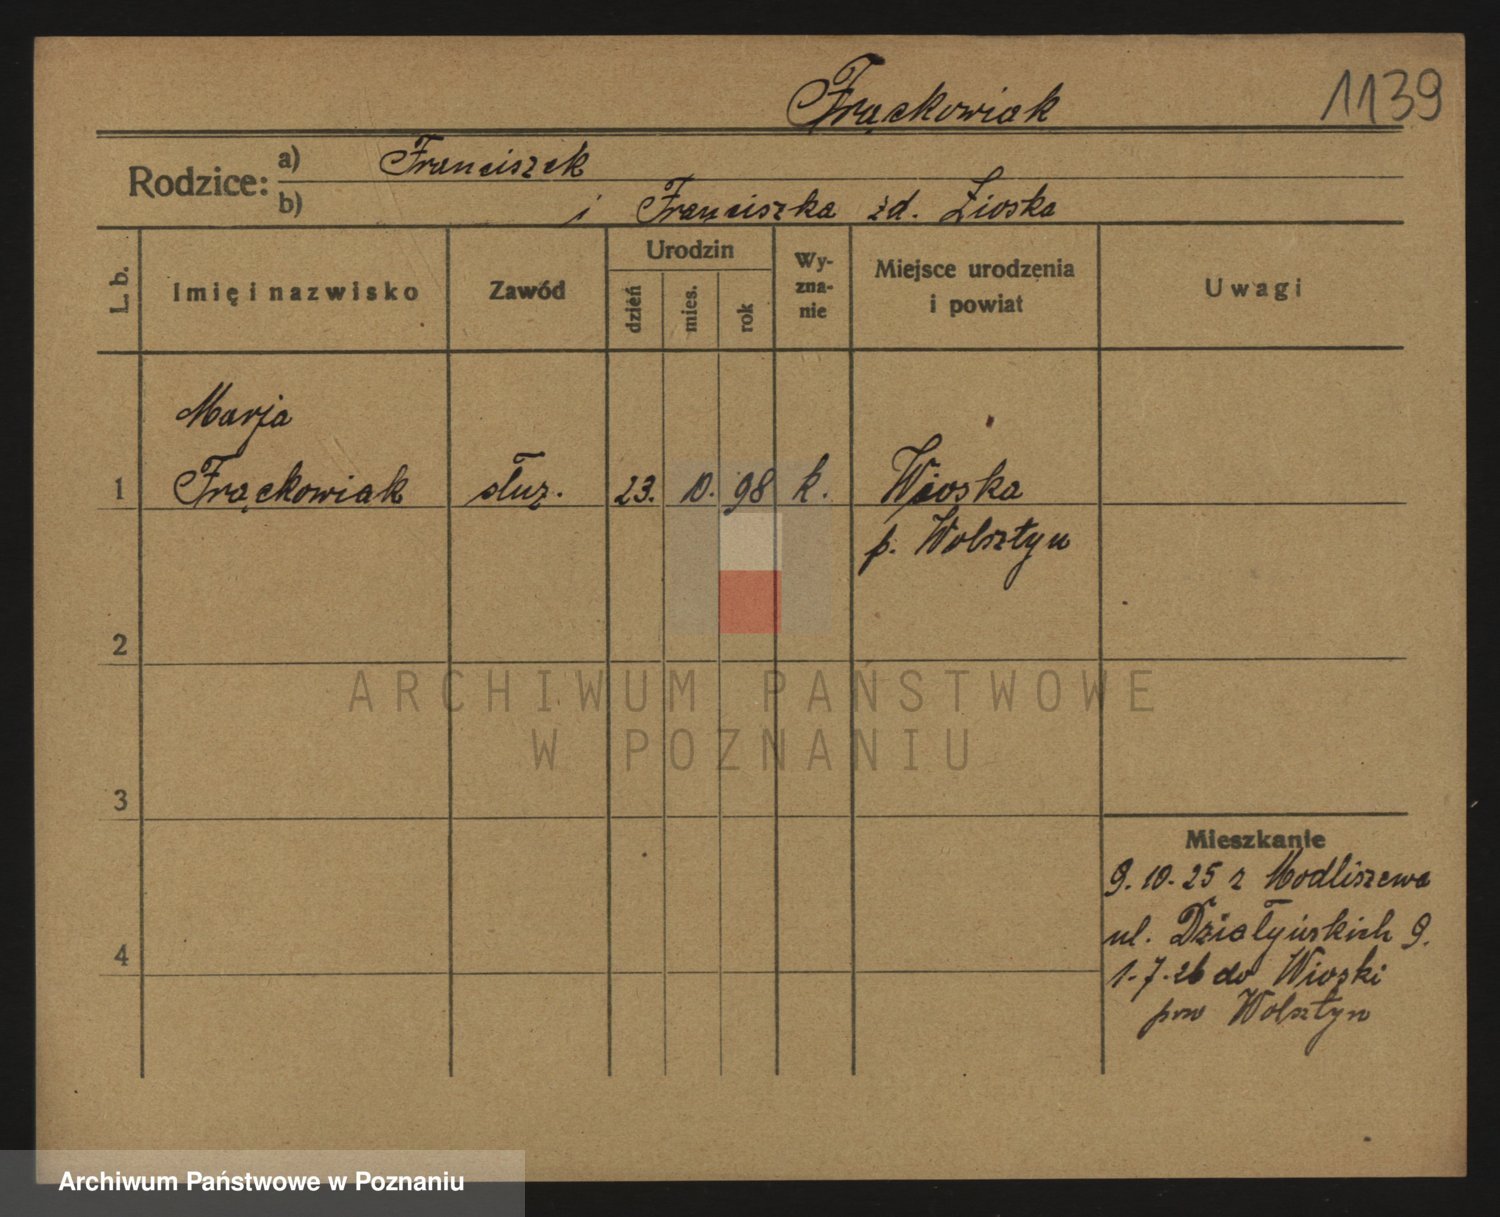 Frąckowiak
1139
Rodzice:
a) Franciszek
b) i Franciszka zd. Zioska
L. b.
Imię i nazwisko
Zawód
Urodzin
dzień
mies.
rok
Wy-
zna-
nie
Miejsce urodzenia
i powiat
Uwagi
Marja
1 Frąckowiak służ. 23. 10. 98 k. Wioska
p. Wolsztyn
2
3
4
ARCHIWUM PAŃSTWOWE
W POZNANIU
Mieszkanie
9. 10. 25 z Modliszewa
ul. Działyńskich 9.
1-7-26 do Wioski
pow Wolsztyn
Archiwum Państwowe w Poznaniu